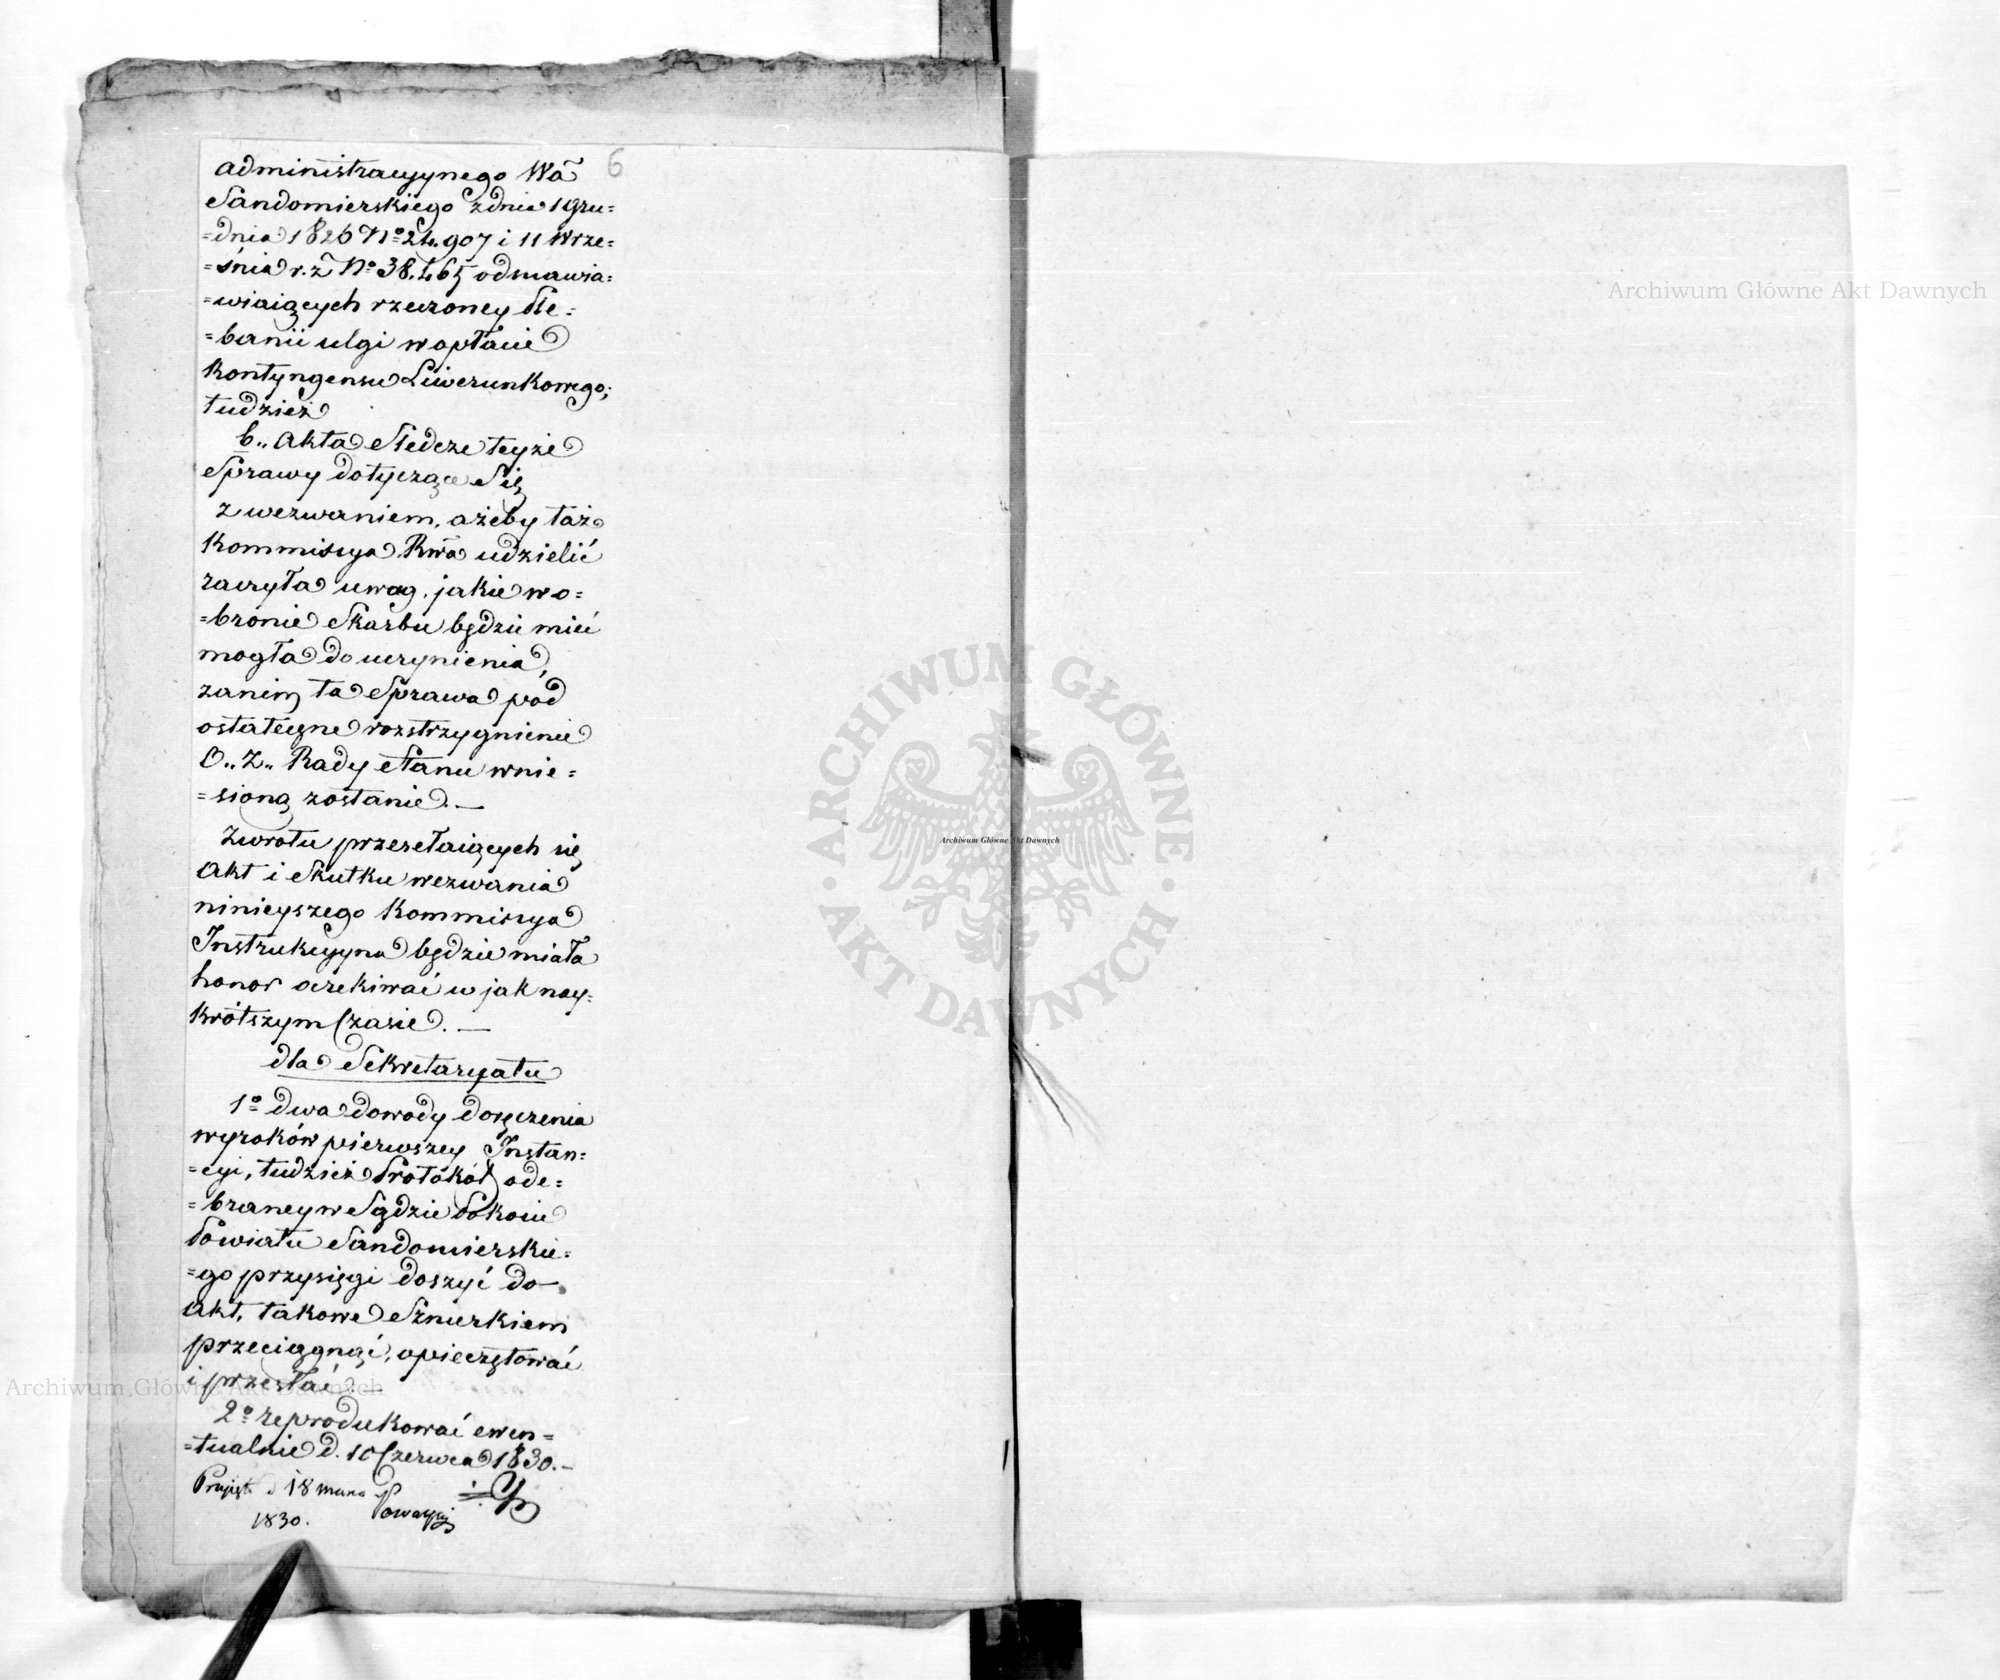 6
administracyynego Wã
Sandomierskiego z dnia 1 gru=
=dnia 1826 No 24.907 i 11 Wrze=
=śnia r. z. No 38.465 odmawia=
=wiaiących rzeczoney Ple=
=banii ulgi w opłacie
Kontyngensu Liwerunkowego;
tudzież
b.. Akta Sledcze teyże
Sprawy dotyczące Się
z wezwaniem, ażeby taż
Kommissya Rwa udzielić
raczyła uwag, jakie w o=
=bronie Skarbu będzie mieć
mogła do uczynienia,
zanim ta Sprawa pod
ostateczne rozstrzygnienie
O.. Z.. Rady Stanu wnie=
=sioną zostanie. —
Zwrotu przesełaiących się
Akt i Skutku wezwania
ninieyszego Kommissya
Instrukcyyna będzie miała
honor oczekiwać w jak nay=
krótszym Czasie. —
dla Sekretaryatu
1o dwa dowody doręczenia
wyroków pierwszey Instan=
=cyi, tudzież Protokół ode=
=braney w Sądzie Pokoiu
Powiatu Sandomierskie=
=go przysięgi doszyć do
akt, takowe Sznurkiem
przeciągnąć, opieczętować
i przesłać. —
2o reprodukować ewen=
=tualnie d. 10 Czerwca 1830. —
Przyięto d 18 marca
1830.
Archiwum Główne Akt Dawnych
Archiwum Główne Akt Dawnych
Archiwum Główne Akt Dawnych
ARCHIWUM GŁÓWNE
· AKT DAWNYCH ·